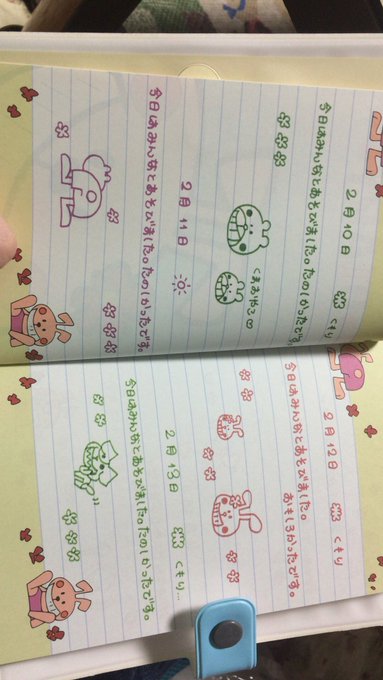 2月10日 くもり
今日はみんなとあそびました。たのしかったです。
くまおやこ
2月11日
今日はみんなとあそびました。たのしかったです。
2月12日 くもり
今日はみんなとあそびました。
おもしろかったです。
2月13日 くもり...
今日はみんなとあそびました。たのしかったです。